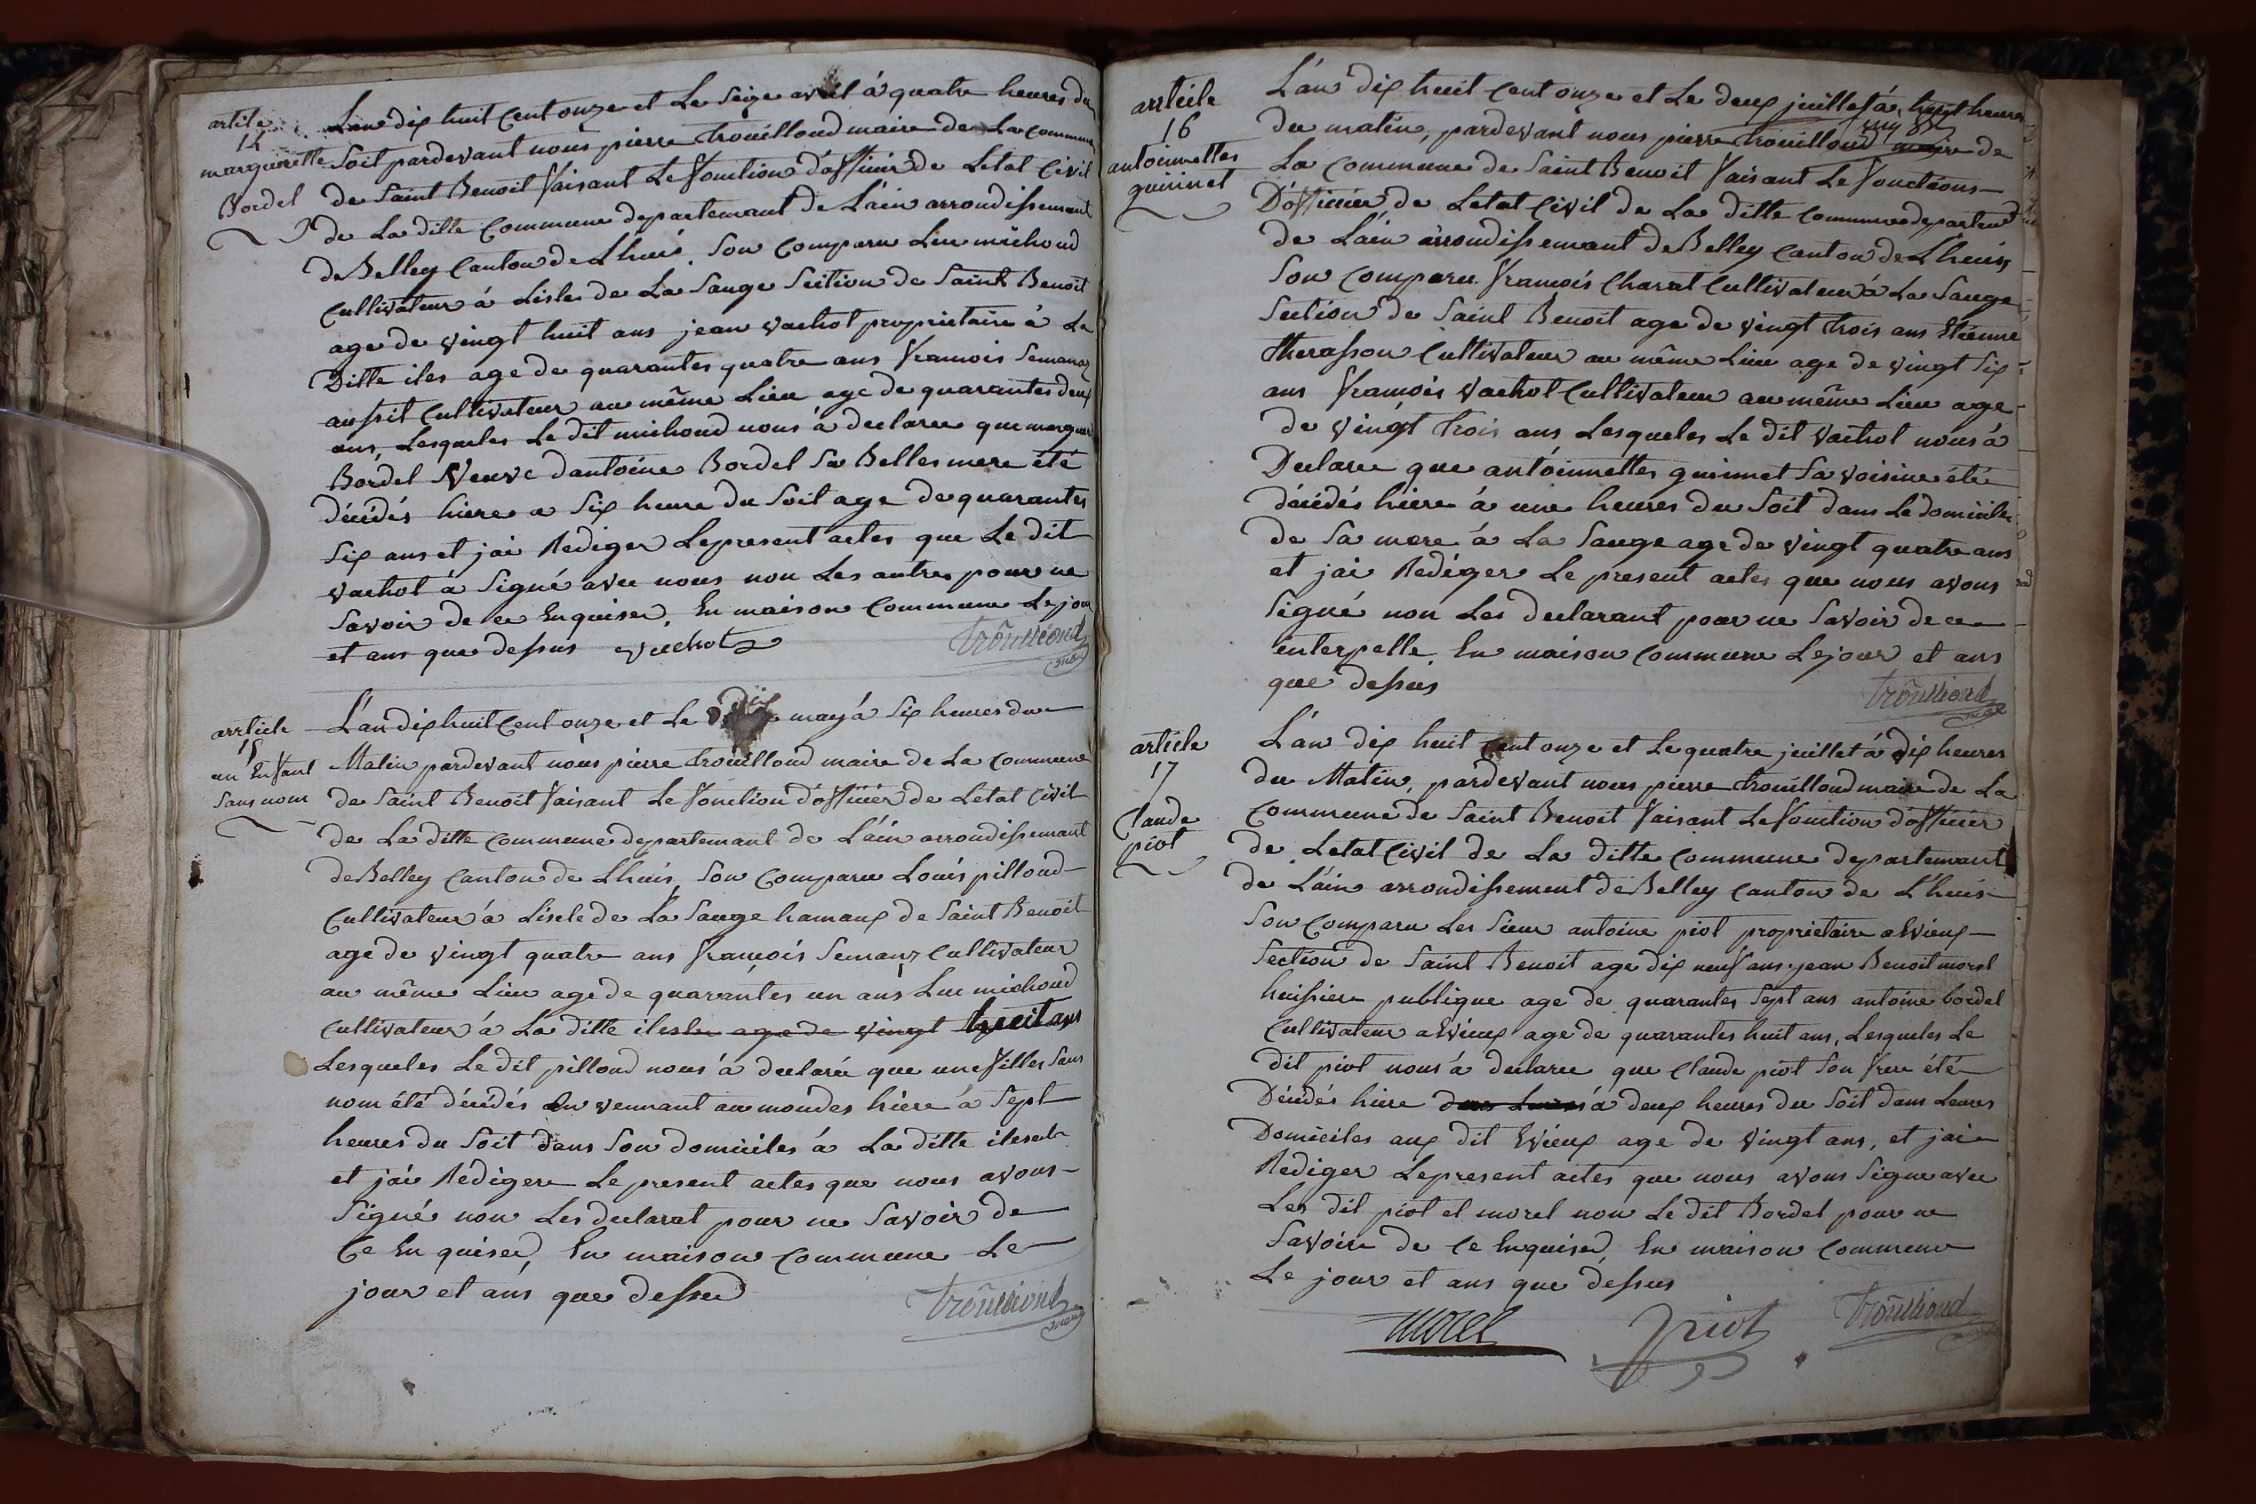 article
14
margueritte
Bordel
L'an dix huit Cent onze et Le Seize avril á quatre heures du
Soit pardevant nous pierre trouilloud maire de La Commune
de Saint Benoit faisant Le fonction d'officier de Letat Civil
de La ditte Commune departemant de L'ain arrondissemant
de Belley Canton de Lhuis. Son Comparu Luc michoud
Cultivateur á Lisle de La Sauge Section de Saint Benoit
age de vingt huit ans jean vachot proprietaire á La
Ditte iles age de quarantes quatre ans francois Semanaz
aussit Cultivateur au même Lieu age de quarantes deux
ans, Lesqueles Le dit michoud nous á declaree que margueri
Bordel Veuve dantoine Bordel Sa Belles mere été
décédés hiere a Six heure du Soit age de quarantes
Six ans et jai Rediger Lepresent actes que Le dit
vachot á Signé avec nous non Les autres pour ne
Savoir de ce Enquised, En maison Commune Le jour
et ans que dessus vachot trouilloud
maire
arrticle
15
un Enfant
Sans nom
L'an dix huit Cent onze et Le dix may á Six heures du
Matin pardevant nous pierre trouilloud maire de La Commune
de Saint Benoit faisant Le fonction d'officier de Letat Civil
de La ditte Commune departemant de L'ain arrondissemant
de Belley Canton de Lhuis, Son Comparu Louis pilloud
Cultivateur á Lisele de La Sauge hamaux de Saint Benoit
age de vingt quatre ans francois Semanz Cultivateur
au même Lieu age de quarantes un ans Luc michoud
Cultivateur á La ditte ilesle age de vingt huit ans
Lesqueles Le dit pilloud nous á declarée que une filles Sans
nom été décédés En vennant au mondes hiere á Sept
heures du Soit dans Son domiciles á La ditte ilesele
et jai Rédigere Le present actes que nous avons
Signé non Les declarat pour ne Savoir de
Ce En quised, En maison Commune Le
jour et ans que dessud
trouilloud
maire
arrticle
16
antoinnettes
guinnet
L'an dix huit Cent onze et Le deux juillet á huit heures
du matin, pardevant nous pierre trouilloud maire de
La Commune de Saint Benoit faisant Le fonctions
D'officier de Letat Civil de La ditte Commune departem
de L'ain arrondissemant de Belley Canton de Lhuis
Son Comparu francois Charat Cultivateur á La Sauge
Section de Saint Benoit age de vingt trois ans Etienne
therasson Cultivateur au même Lieu age de vingt Six
ans francois vachot Cultivateur au même Lieu age
de vingt trois ans Lesqueles Le dit vachot nous á
Declare que antoinnettes guinnet Sa voisine été
décédés hiere á une heures du Soit dans Le domiciles
de Sa mere á La Sauge age de vingt quatre ans
et jai Rédiger Le present actes que nous avons
Signé non Les declarant pour ne Savoir de ce
interpelle, En maison Commune Le jour et ans
que dessus
trouilloud
maire
article
17
Claude
piot
L'an dix huit Cent onze et Le quatre juillet á dix heures
du Matin, pardevant nous pierre trouilloud maire de La
Commune de Saint Benoit faisant Le fonction d'officier
de Letat Civil de La ditte Commune departemant
de L'ain arrondissement de Belley Canton de L'huis
Son Comparu Les Sieur antoine piot proprietaire a Evieux
Section de Saint Benoit age dix neuf ans jean Benoit morel
huissiere publique age de quarantes Sept ans antoine bordel
Cultivateur a Evieux age de quarantes huit ans, Lesqueles Le
dit piot nous á declaree que Claude piot Son frere été
Décédés hiere á deux heures du Soit dans Leures
Domiciles aux dit Evieux age de vingt ans, et jai
Rediger Lepresent actes que nous avons Signe avec
Les dit piot et morel non Le dit Bordel pour ne
Savoire de Ce Enquised, En maison Commune
Le jour et ans que dessus
morel piot trouilloud